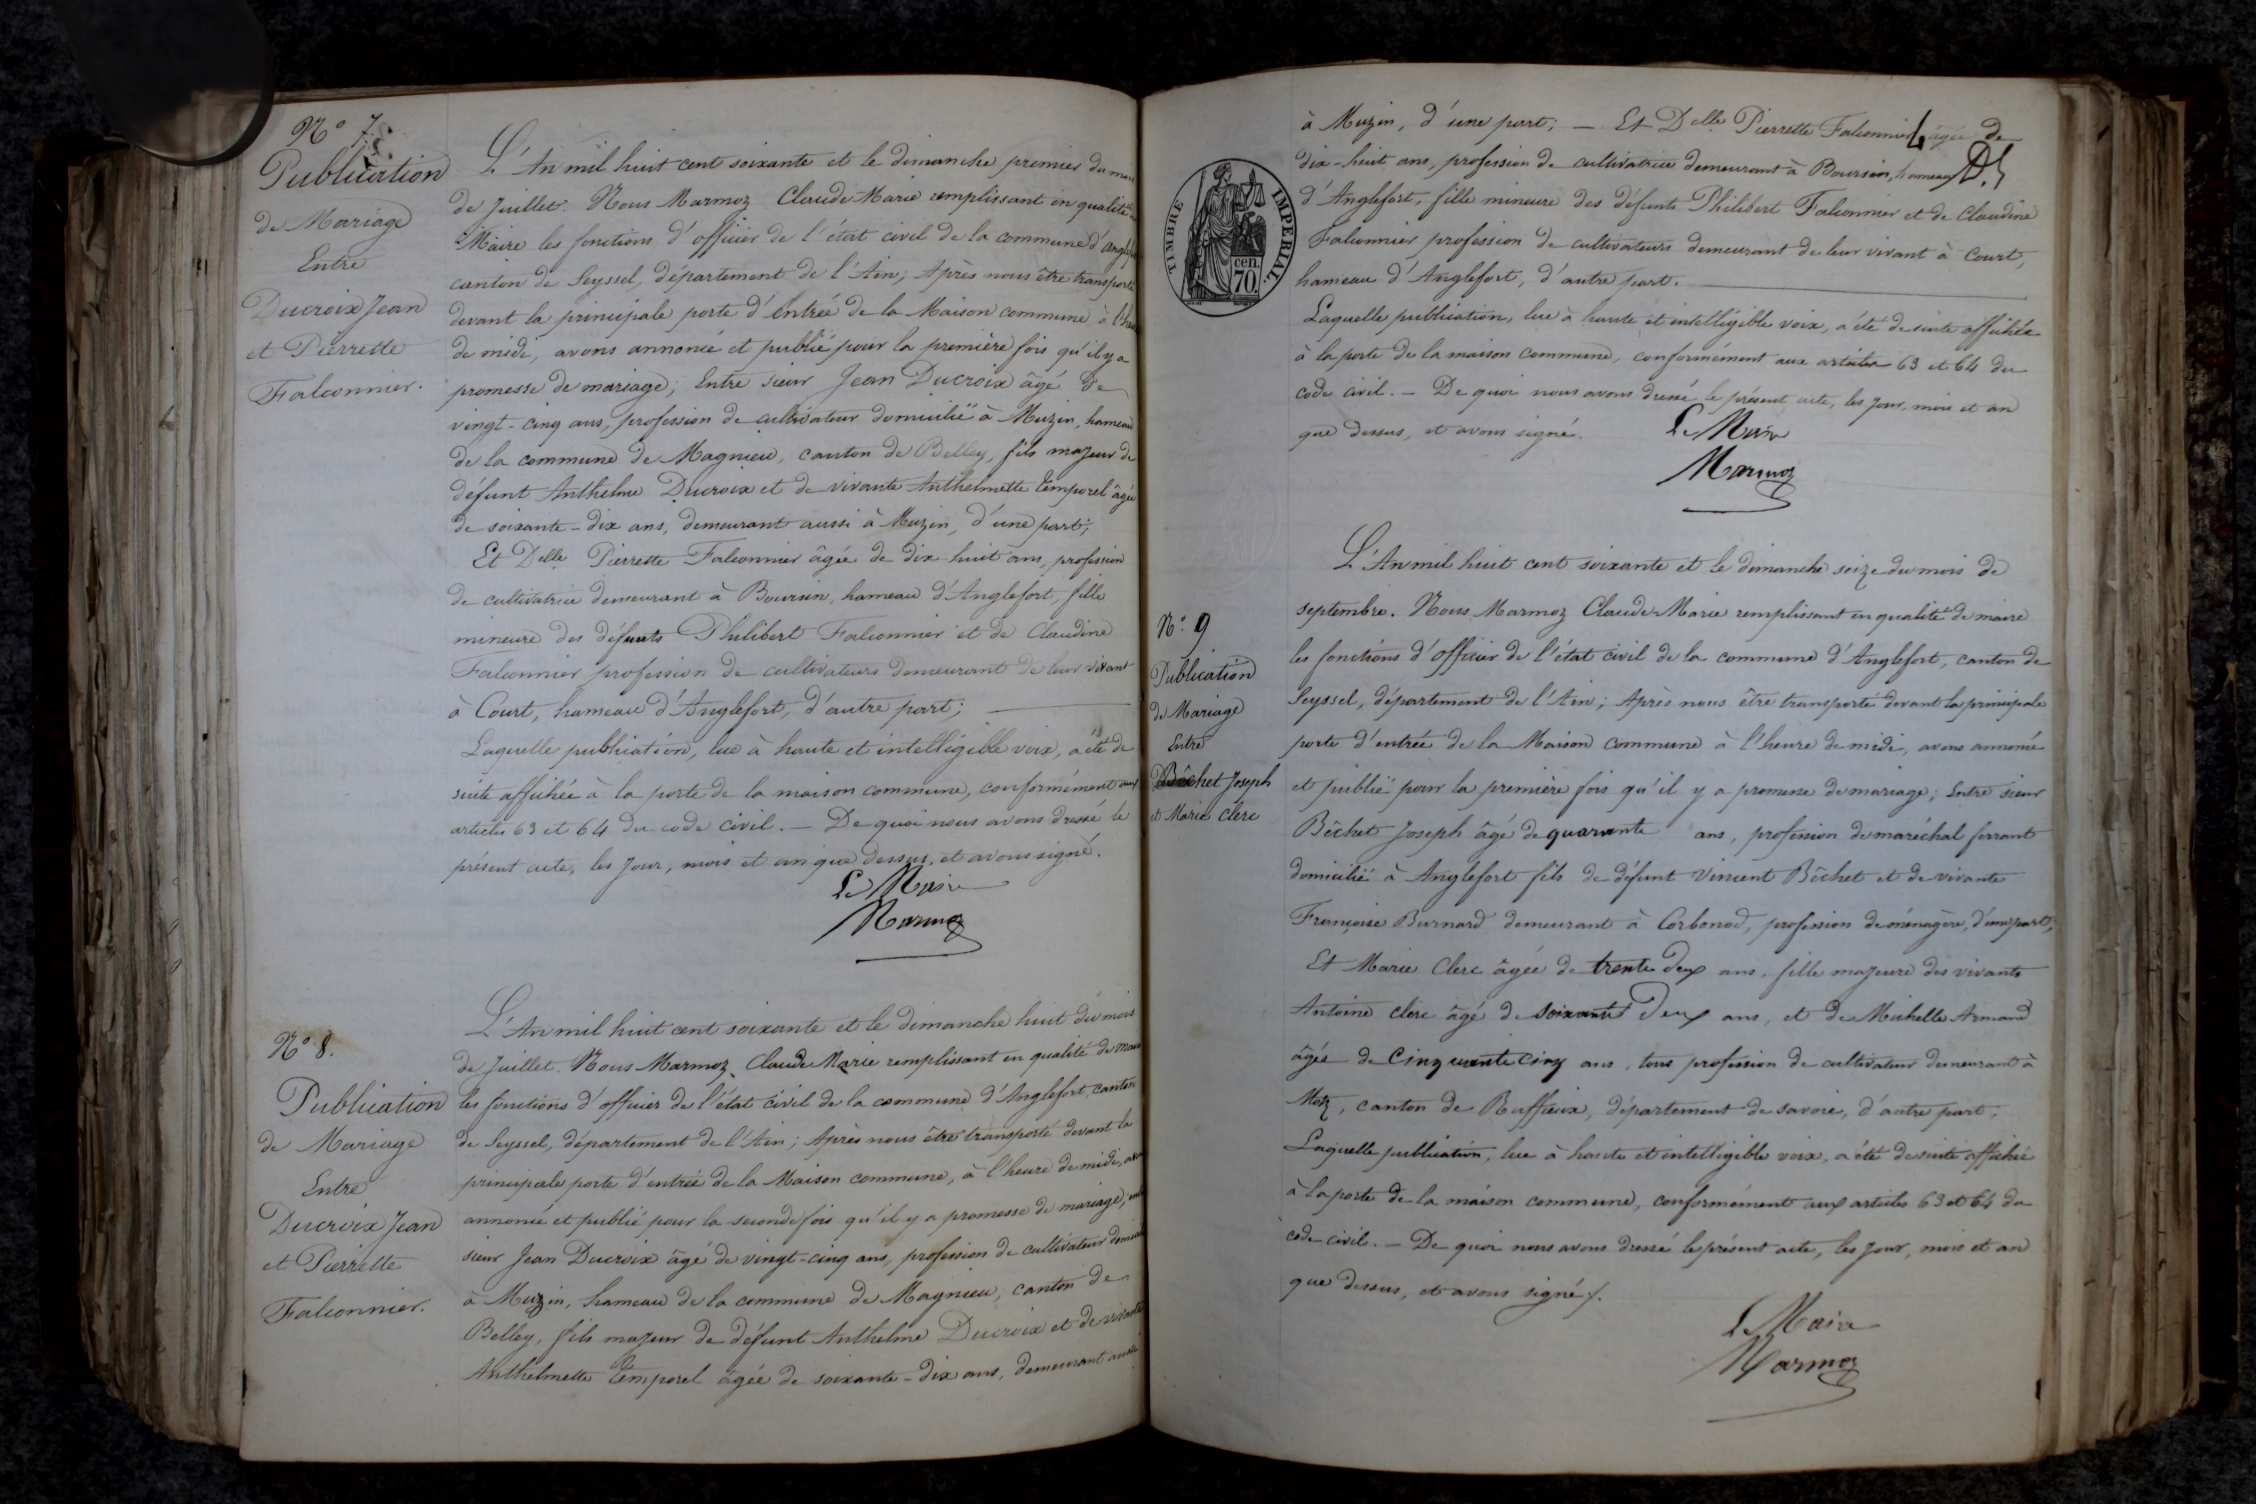 N° 7.
Publication
de Mariage
Entre
Ducroix Jean
et Pierrette
Falconnier.
L'An mil huit cent soixante et le dimanche premier du mois
de Juillet. Nous Marmoz Claude Marie remplissant en qualité de
Maire les fonctions d'officier de l'état civil de la commune d'Anglefort
canton de Seyssel, département de l'Ain; Après nous être transporté
devant la principale porte d'entrée de la Maison commune à l'heure
de midi, avons annoncé et publié pour la première fois qu'il y a
promesse de mariage; Entre sieur Jean Ducroix âgé de
vingt-cinq ans, profession de cultivateur domicilié à Muzin, hameau
de la commune de Magnieu, canton de Belley, fils majeur de
défunt Anthelme Ducroix et de vivante Anthelmette Temporel âgée
de soixante-dix ans, demeurant aussi à Muzin, d'une part;
Et Delle Pierrette Falconnier âgée de dix-huit ans, profession
de cultivatrice demeurant à Boursin, hameau d'Anglefort, fille
mineure des défunts Philibert Falconnier et de Claudine
Falconnier profession de cultivateurs demeurant de leur vivant
à Court, hameau d'Anglefort, d'autre part;
Laquelle publication, lue à haute et intelligible voix, a été de
suite affichée à la porte de la maison commune, conformément aux
articles 63 et 64 du code civil. — De quoi nous avons dressé le
présent acte, les Jour, mois et an que dessus, et avons signé.
Le Maire
Marmoz
N° 8.
Publication
de Mariage
Entre
Ducroix Jean
et Pierrette
Falconnier.
L'An mil huit cent soixante et le dimanche huit du mois
de Juillet. Nous Marmoz Claude Marie remplissant en qualité de Maire
les fonctions d'officier de l'état civil de la commune d'Anglefort, canton
de Seyssel, département de l'Ain; Après nous être transporté devant la
principale porte d'entrée de la Maison commune, à l'heure de midi, avons
annoncé et publié pour la seconde fois qu'il y a promesse de mariage, entre
sieur Jean Ducroix âgé de vingt-cinq ans, profession de cultivateur domicilié
à Muzin, hameau de la commune de Magnieu, canton de
Belley, fils majeur de défunt Anthelme Ducroix et de vivante
Anthelmette Temporel âgée de soixante-dix ans, demeurant aussi
à Muzin, d'une part; — Et Delle Pierrette Falconnier âgée de
dix-huit ans, profession de cultivatrice demeurant à Boursin, hameau
d'Anglefort, fille mineure des défunts Philibert Falconnier et de Claudine
Falconnier profession de cultivateurs demeurant de leur vivant à Court,
hameau d'Anglefort, d'autre part.
Laquelle publication, lue à haute et intelligible voix, a été de suite affichée
à la porte de la maison commune, conformément aux articles 63 et 64 du
code civil. — De quoi nous avons dressé le présent acte, les jour, mois et an
que dessus, et avons signé.
Le Maire
Marmoz
TIMBRE IMPERIAL.
70. cen.
N° 9
Publication
de Mariage
Entre
Bêchet Joseph
et Marie Clerc
L'An mil huit cent soixante et le dimanche seize du mois de
septembre. Nous Marmoz Claude Marie remplissant en qualité de maire
les fonctions d'officier de l'état civil de la commune d'Anglefort, canton de
Seyssel, département de l'Ain; Après nous être transporté devant la principale
porte d'entrée de la Maison commune à l'heure de midi, avons annoncé
et publié pour la première fois qu'il y a promesse de mariage; Entre sieur
Bêchet Joseph âgé de quarante ans, profession de maréchal ferrant
domicilié à Anglefort fils de défunt Vincent Bêchet et de vivante
Françoise Burnard demeurant à Corbonod, profession de ménagère, d'une part;
Et Marie Clerc âgée de trente deux ans, fille majeure des vivants
Antoine Clerc âgé de soixante Deux ans, et de Michelle Armand
âgée de Cinquante Cinq ans, tous profession de cultivateur demeurant à
Motz, canton de Ruffieux, département de savoie, d'autre part;
Laquelle publication, lue à haute et intelligible voix, a été de suite affichée
à la porte de la maison commune, conformément aux articles 63 et 64 du
code civil. — De quoi nous avons dressé le présent acte, les jour, mois et an
que dessus, et avons signé /.
Le Maire
Marmoz